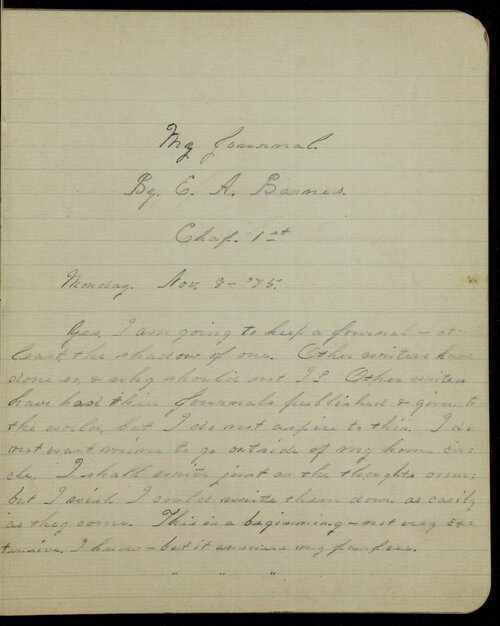 My Journal.
By. E. A. Barnes.
Chap. 1st
Monday. Nov. 8 - '75.
Yes, I am going to keep a Journal - at
least, the shadow of one. Other writers have
done so, & why should not I? Other writers
have had their Journals published & given to
the world, but I do not aspire to this. I do
not want mine to go outside of my home cir-
cle. I shall write just as the thoughts occur
but I wish I could write them down as easily
as they come. This is a beginning - not very ex-
tensive, I know - but it answers my purpose.
" " "